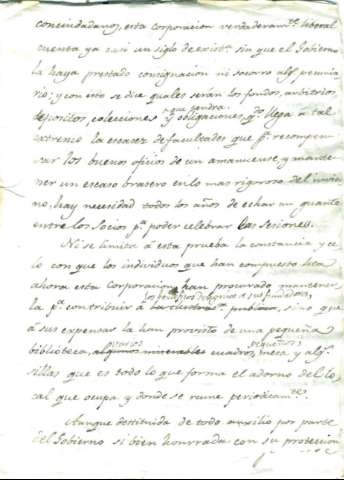 conciudadanos, esta corporacion verdaderamte. liberal
cuenta ya casi un siglo de exista. sin que el Gobierno
la haya prestado consignacion ni socorro algo. pecunia
rio; y con esto se dice quales serán los fondos, arbitrios,
que pendra.
depositos, colecciones y obligaciones qe. llega a tal
extremo la escasez de facultades que pa. recompen-
sar los buenos oficios de un amanuense, y mante-
ner un escaso brasero en lo mas rigoroso del invier
no, hay necesidad todos los años de echar un guante
entre los Socios pa. poder celebrar las sesiones.
No se limita á esta prueba la constancia y ce-
lo con que los individuos que han compuesto hta
ahora esta Corporacion han procurado mantener
la pa. contribuir á sino que
á sus expensas la han provisto de una pequeña
biblioteca, algunos minerales cuadros, mesa y algs.
sillas que es todo lo que forma el adorno del lo-
cal que ocupa y donde se reune periodicamte.
Aunque destituida de todo auxilio por parte
del Gobierno si bien honrrada con su proteccion